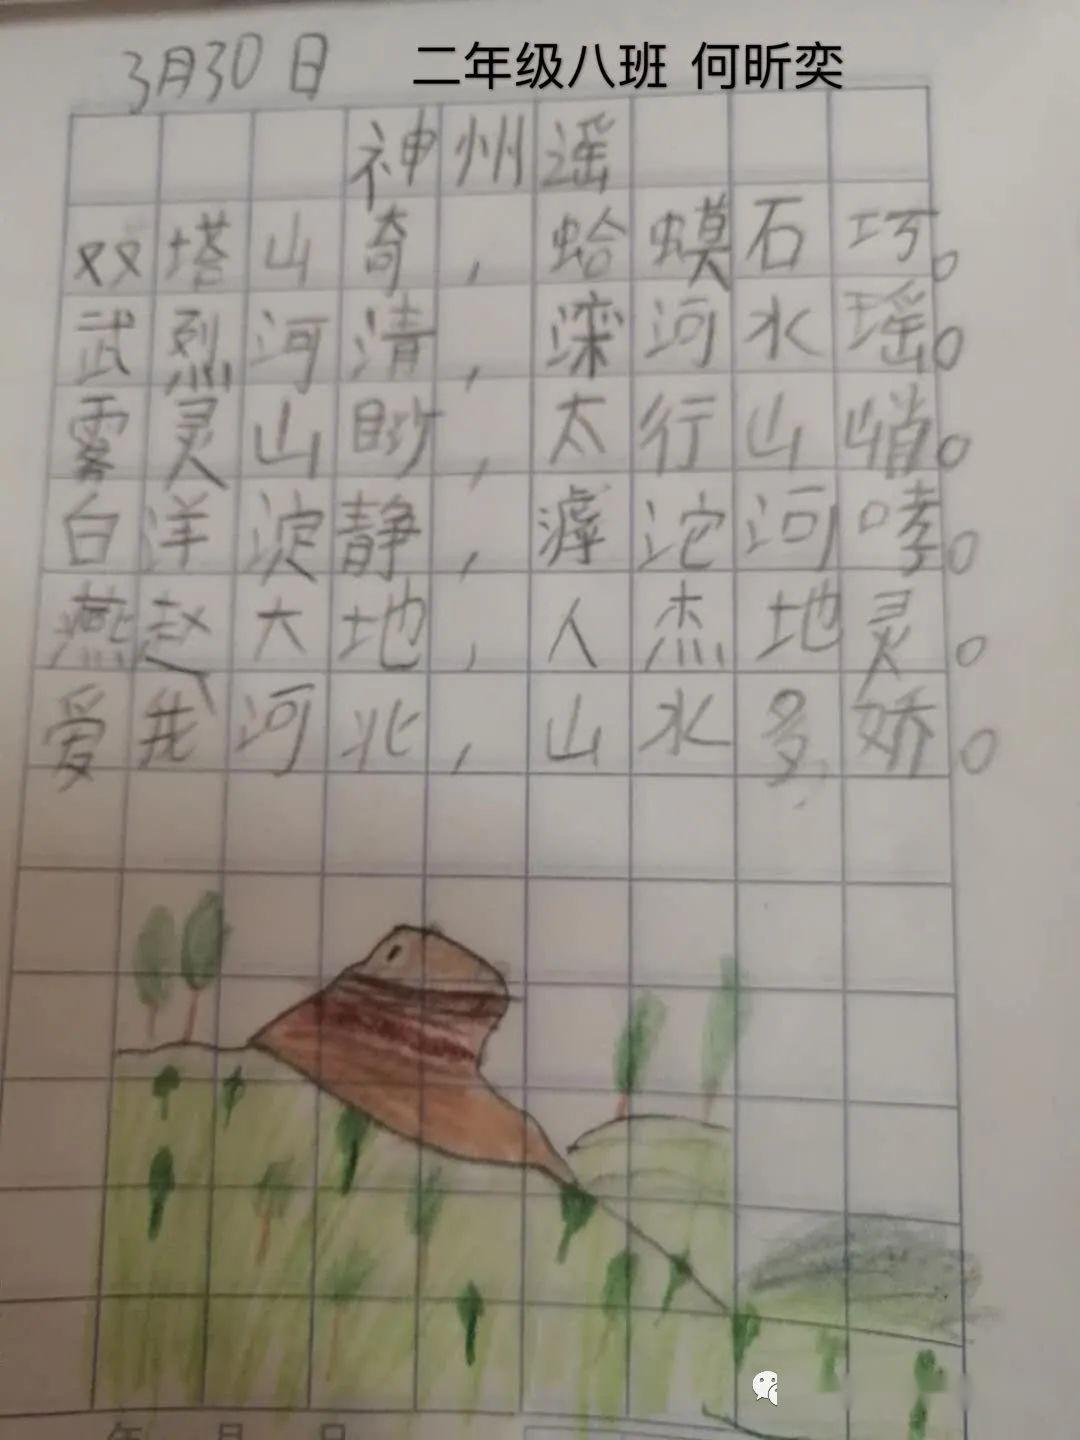 3月30日 二年级八班 何昕奕
神州谣
双塔山奇，蛤蟆石巧。
武烈河清，滦河水瑶。
雾灵山眇，太行山峭。
白洋淀静，滹沱河哮。
燕赵大地，人杰地灵。
爱我河北，山水多娇。
年 月 日